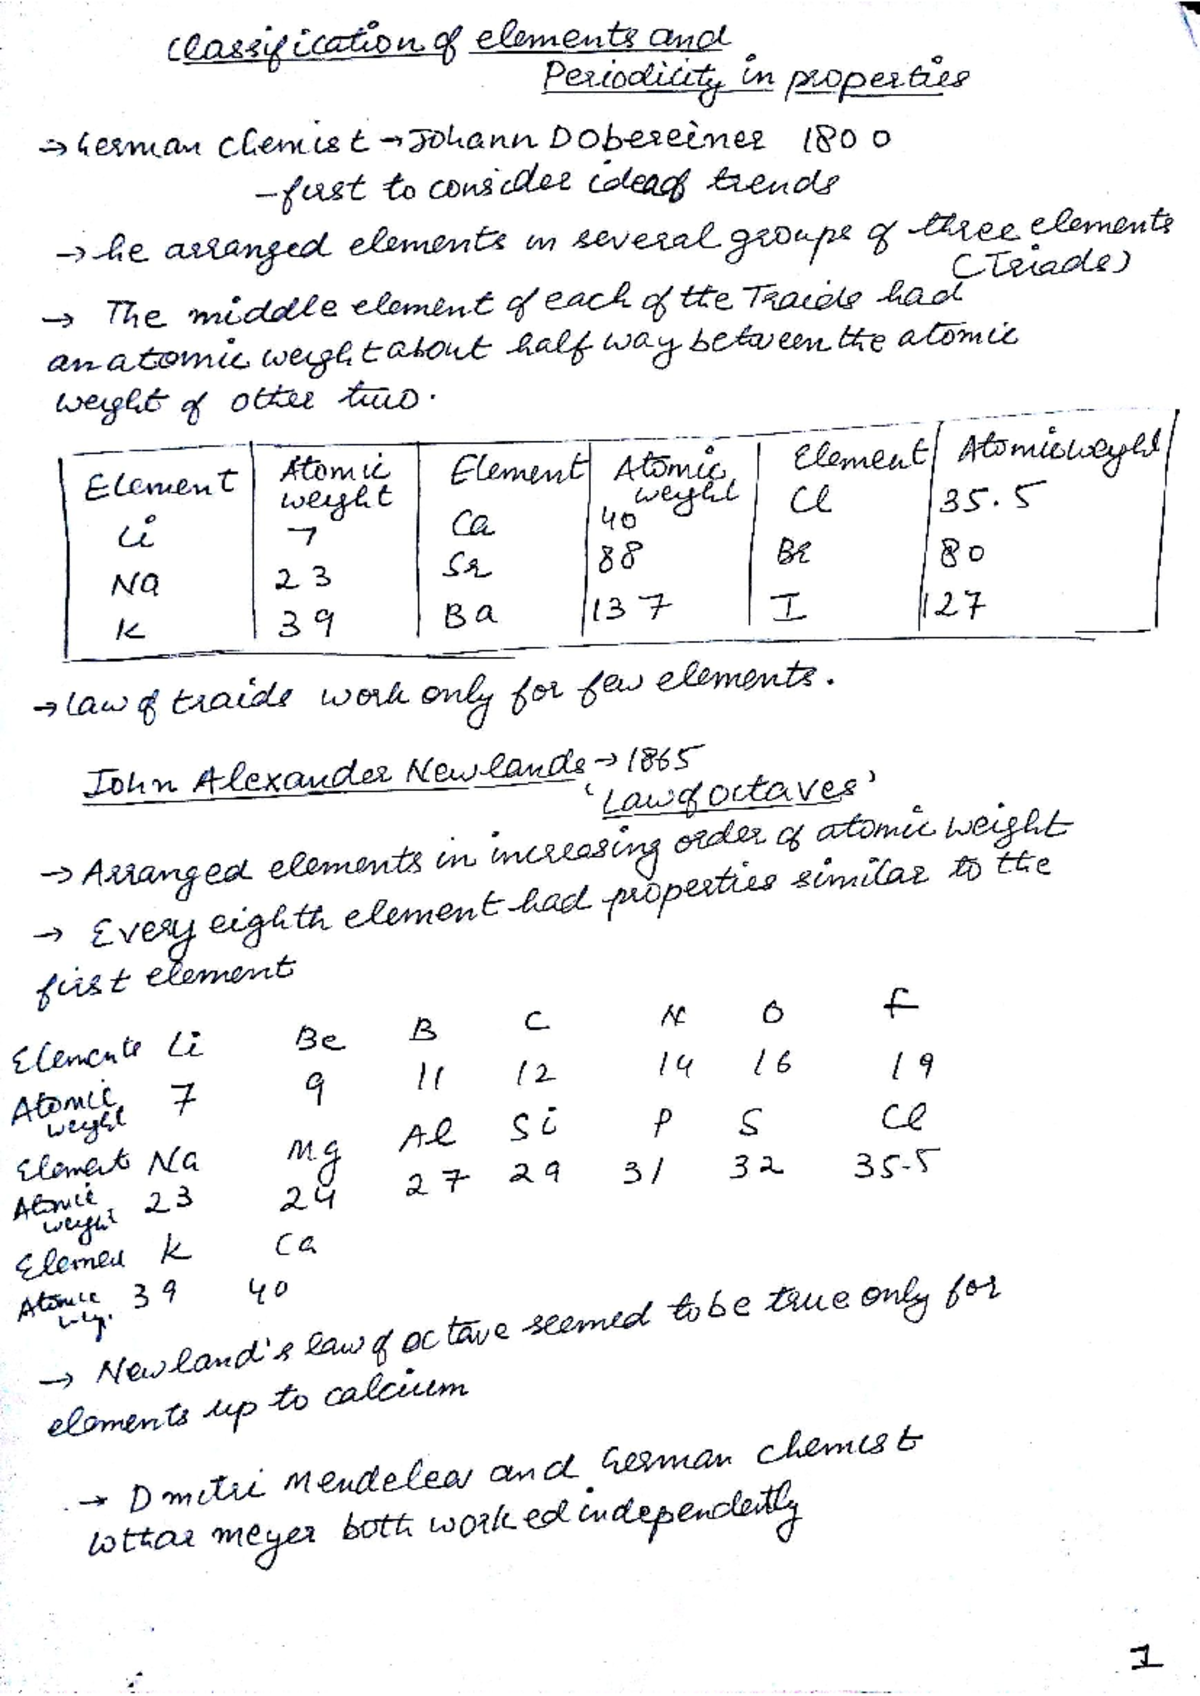 Classification of elements and
Periodicity in properties
→ German Chemist → Johann Dobereiner 1800
– first to consider idea of trends
→ he arranged elements in several groups of three elements
(Triads)
→ The middle element of each of the Traids had
an atomic weight about half way between the atomic
weight of other two.
Element | Atomic weight | Element | Atomic weight | Element | Atomic weight
Li | 7 | Ca | 40 | Cl | 35.5
Na | 23 | Sr | 88 | Br | 80
K | 39 | Ba | 137 | I | 127
→ Law of traids work only for few elements.
John Alexander Newlands → 1865
'Law of octaves'
→ Arranged elements in increasing order of atomic weight
→ Every eighth element had properties similar to the
first element
Elements Li Be B C N O F
Atomic weight 7 9 11 12 14 16 19
Element Na Mg Al Si P S Cl
Atomic weight 23 24 27 29 31 32 35.5
Element K Ca
Atomic wg. 39 40
→ Newland's law of octave seemed to be true only for
elements up to calcium
→ Dmitri Mendeleev and German chemist
Lothar Meyer both worked independently
1